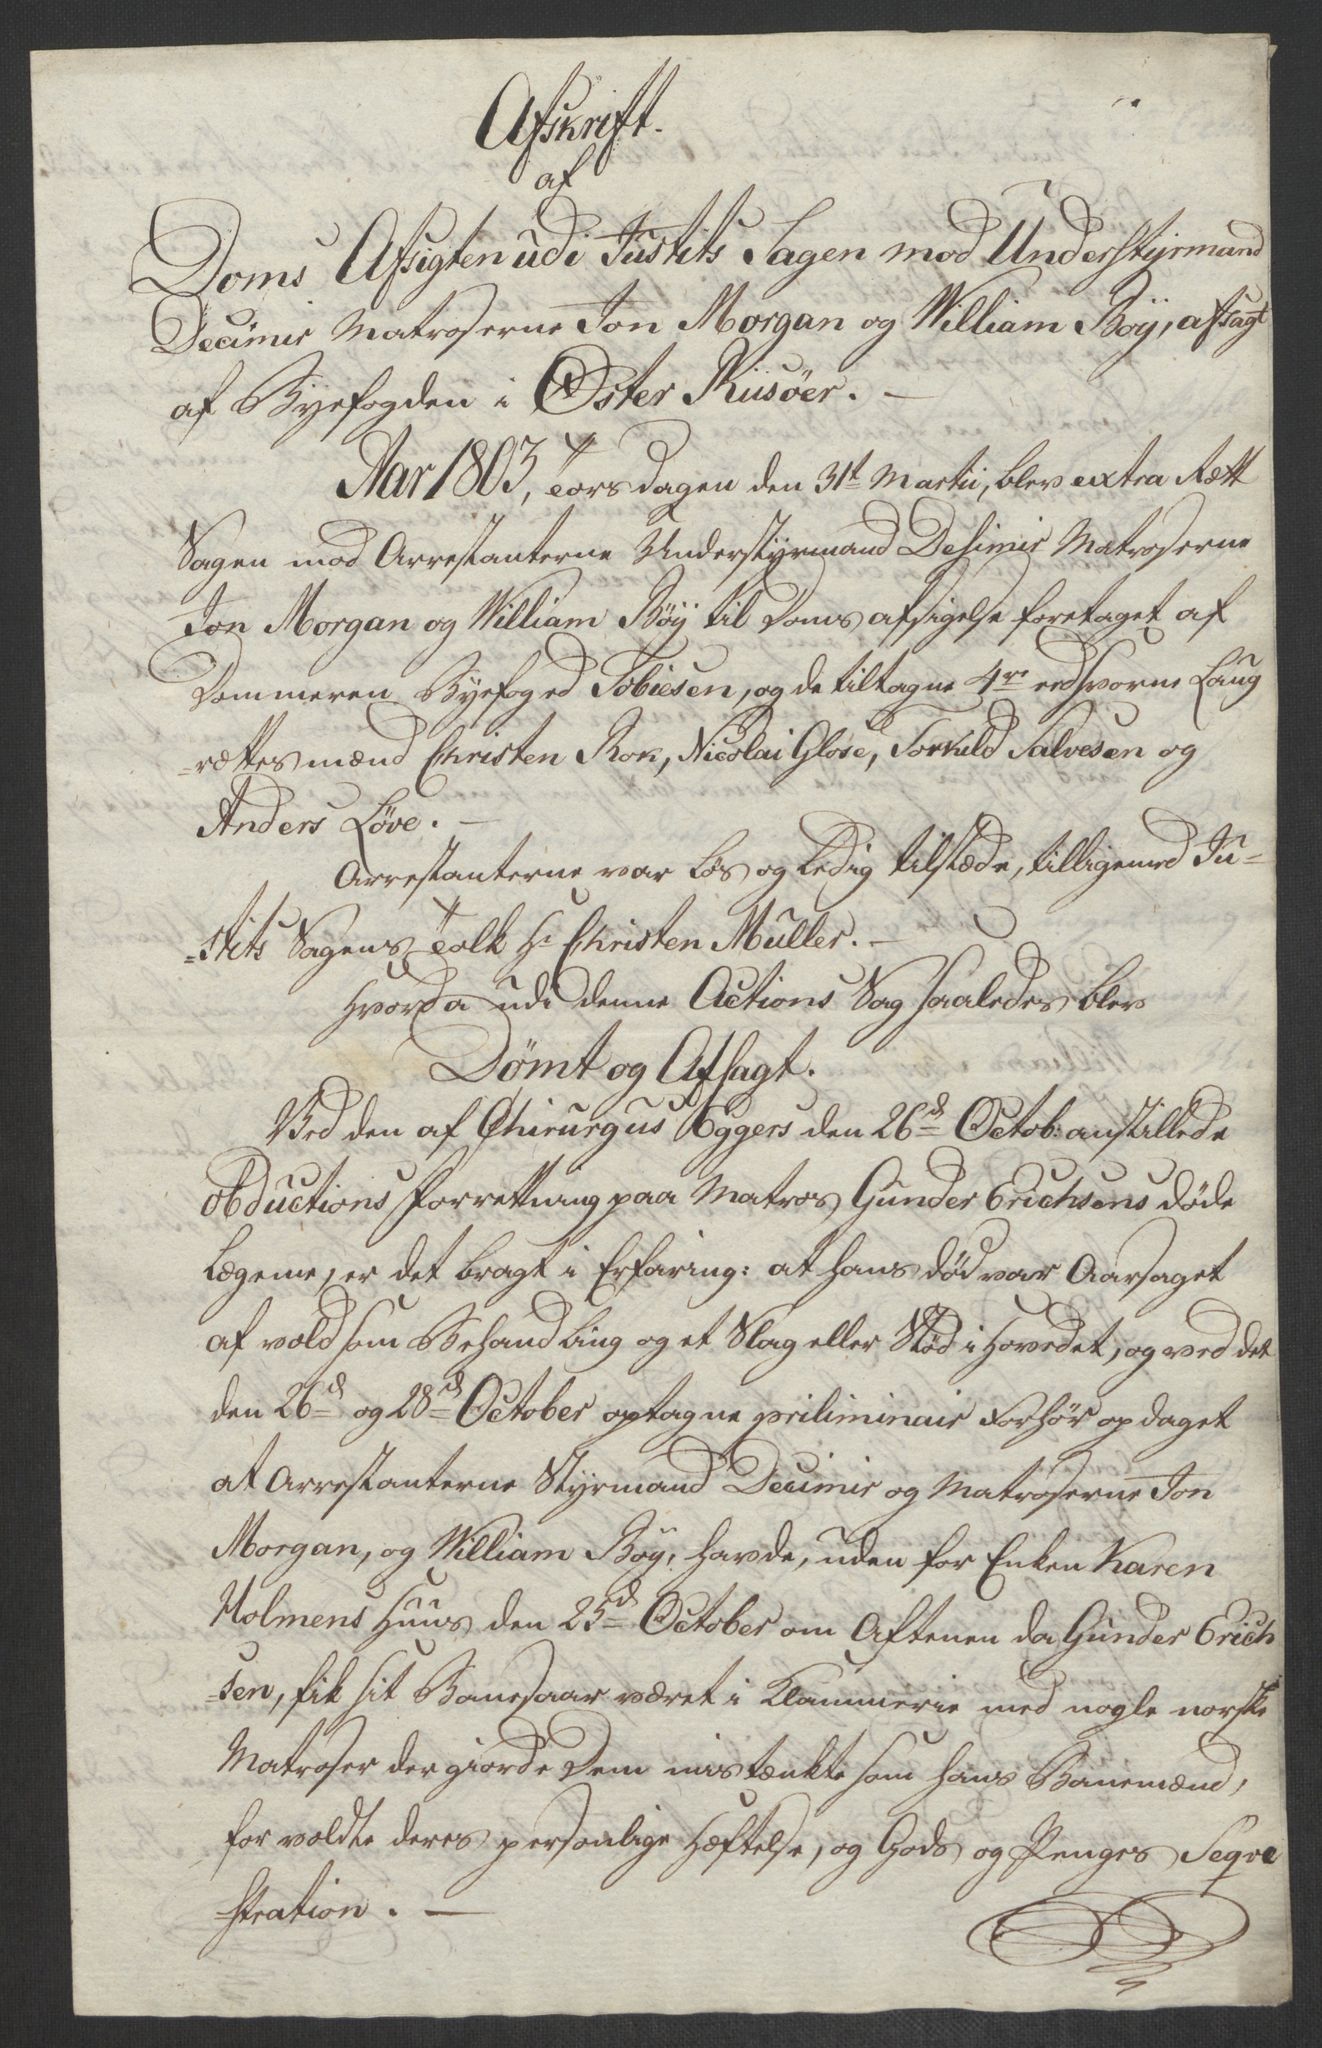 Afskrift.
af
Doms Afsigten udi Justits Sagen mod Understyrmand
Decimir Matroserne Jon Morgan og William Böÿ, afsagt
af Byefogden i Öster Riisöer. —
Aar 1803, Torsdagen den 31t Martii, blev extra Rætt
Sagen mod Arrestanterne Understyrmand Desimir Matroserne
Jon Morgan og William Böÿ til Doms afsigelse foretaget af
Dommeren Byefoged Tobiesen, og de tiltagne 4re eedsvorne Laug
=rættesmænd Christen Rok, Nicolai Glose, Torkuld Salvesen og
Anders Löve. —
Arrestanterne var Løs og Ledig tilstæde, tilligemed Ju=
=stits Sagens Tolk Hr Christen Müller. —
Hvorda udi denne Actions Sag saaledes blev
Dömt og Afsagt.
Ved den af Chirurgus Eggers den 26d Octob: anstillede
obductions Forretning paa Matros Gunder Erichsens døde
Legeme, er det bragt i Erfaring: at hans død var Aarsaget
af voldsom Behandling og et Slag eller Stød i Hovedet, og ved det
den 26d og 28d October optagne priliminair Forhör opdaget
at Arrestanterne Styrmand Decimir og Matroserne Jon
Morgan, og William Böy, havde, uden for Enken Karen
Holmens Huus den 25d October om Aftenen da Gunder Erich
=sen, fik sit Banesaar været i Klammerie med nogle norske
Matroser der giorde Dem mistænkte som hans Banemænd,
forvoldte deres personlige Hæftelse, og Gods og Penges Seqve
=stration. —